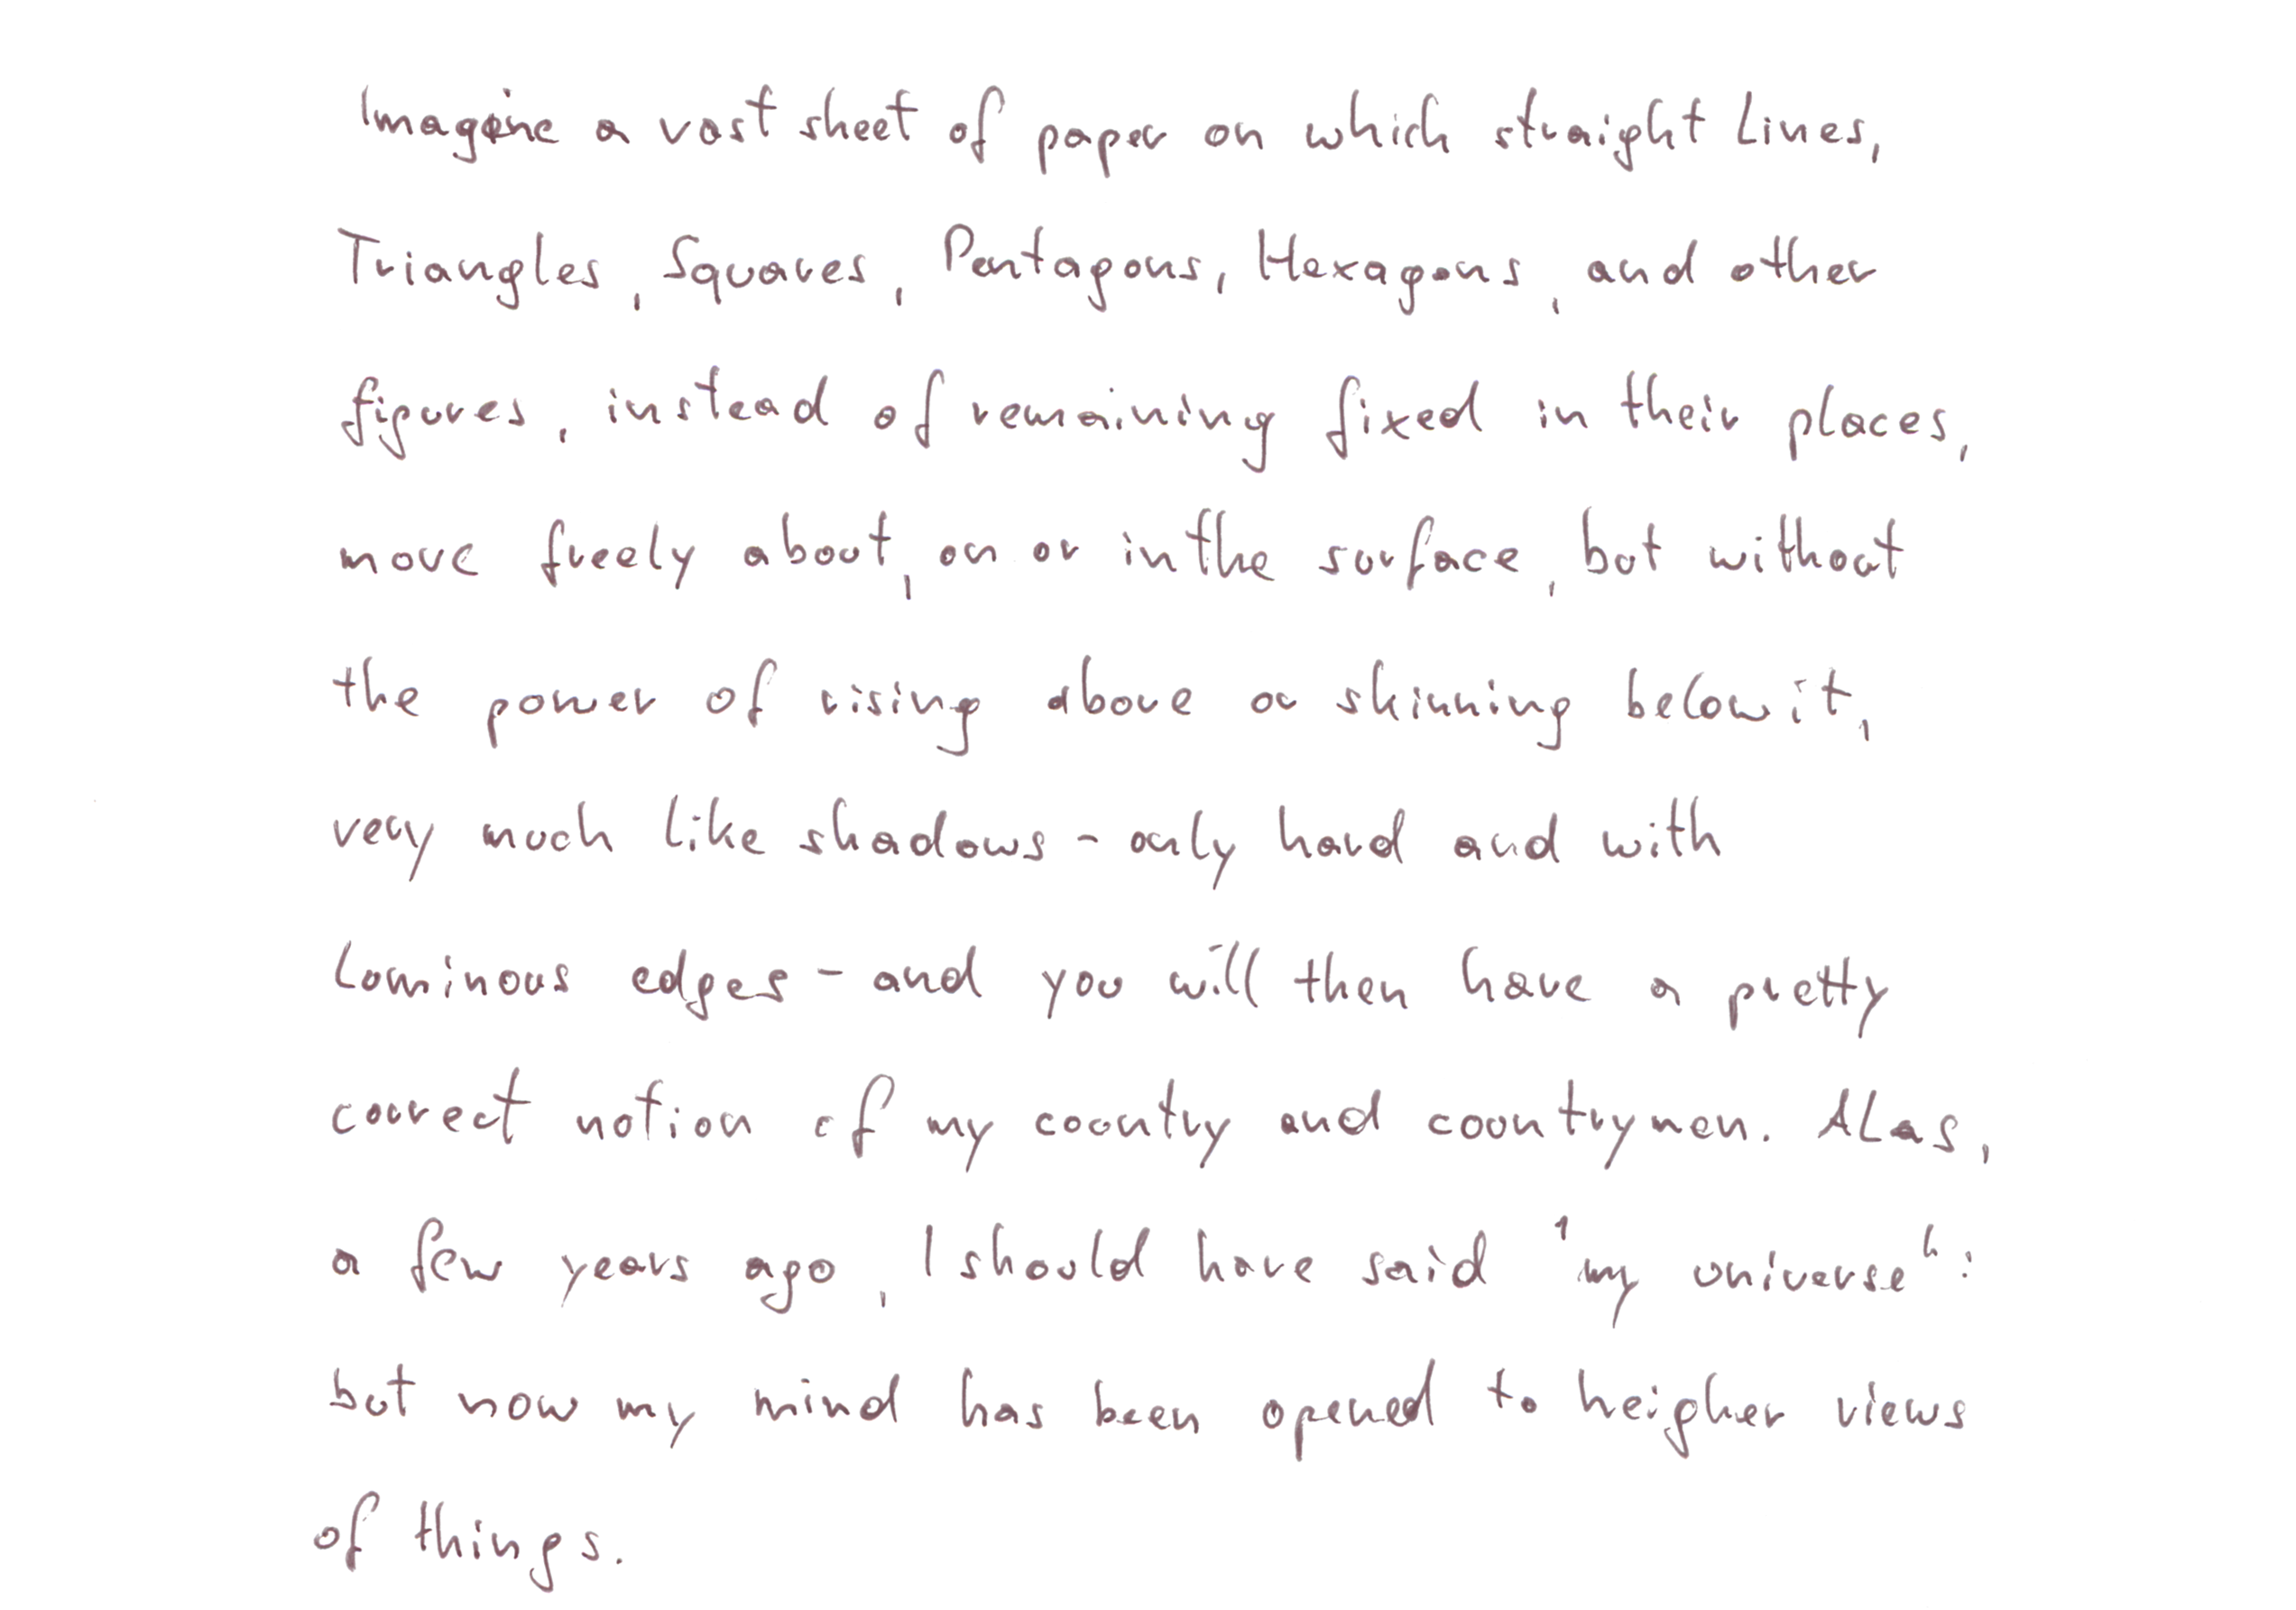 Imagine a vast sheet of paper on which straight Lines,
Triangles, Squares, Pentagons, Hexagons, and other
figures, instead of remaining fixed in their places,
move freely about, on or in the surface, but without
the power of rising above or skinning below it,
very much like shadows - only hard and with
luminous edges - and you will then have a pretty
correct notion of my country and countrymen. Alas,
a few years ago, I should have said "my universe":
but now my mind has been opened to heigher views
of things.